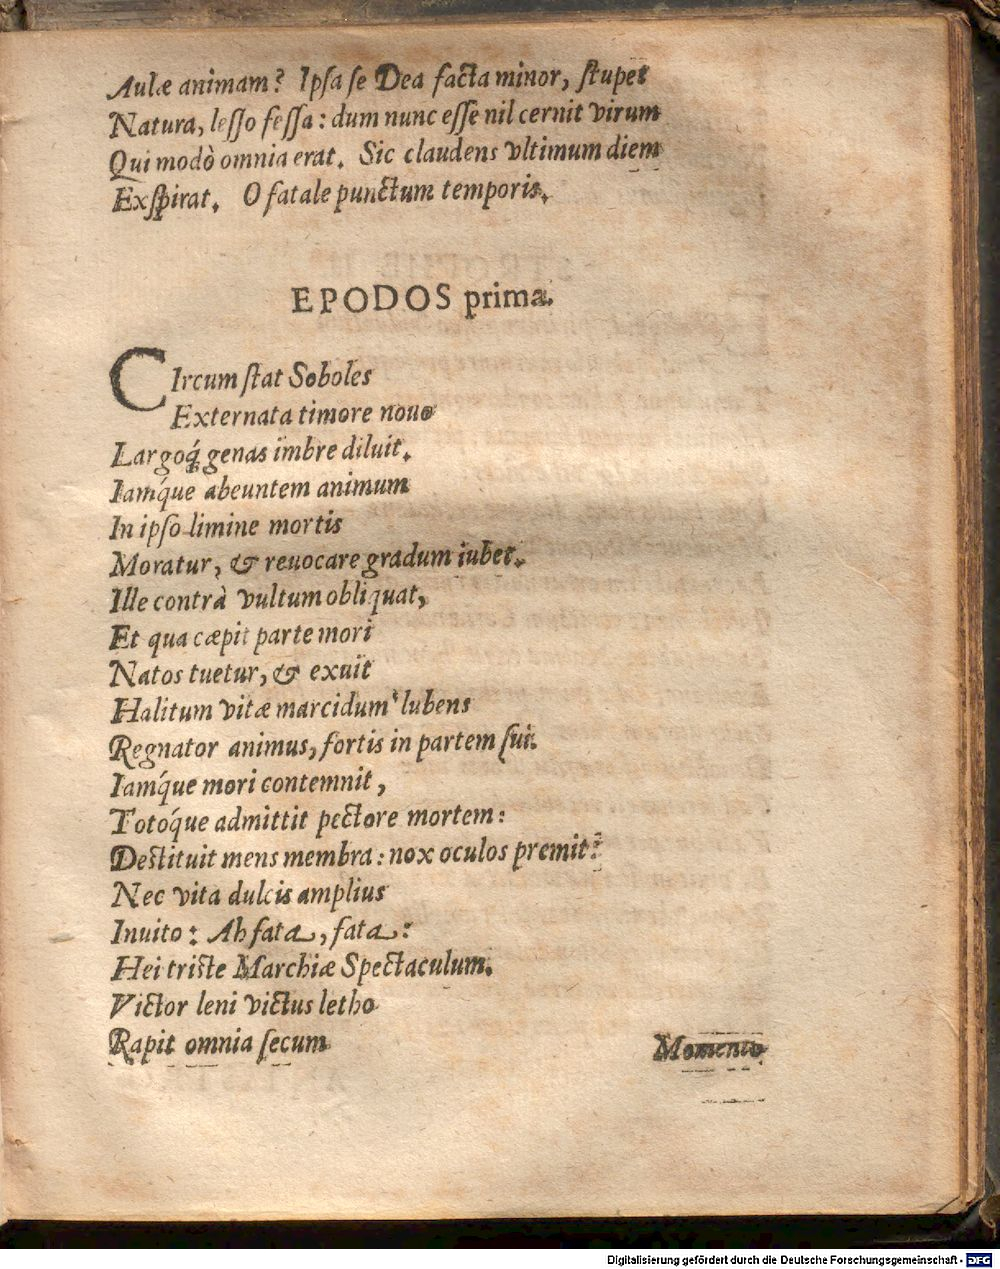 Aulæ animam? Ipſa ſe Dea facta minor, ſtupet
Natura, leſſo feſſa: dum nunc eſſe nil cernit virum
Qui modò omnia erat. Sic claudens vltimum diem
Exſpirat. O fatale punctum temporis.
EPODOS prima.
CIrcum ſtat Soboles
Externata timore nouo
Largoq́; genas imbre diluit.
Iamq́ue abeuntem animum
In ipſo limine mortis
Moratur, & reuocare gradum iubet.
Ille contrà vultum obliquat,
Et qua cæpit parte mori
Natos tuetur, & exuit
Halitum vitæ marcidum lubens
Regnator animus, fortis in partem ſui.
Iamq́ue mori contemnit,
Totoq́ue admittit pectore mortem:
Deſtituit mens membra: nox oculos premit:
Nec vita dulcis amplius
Inuito: Ah fata, fata:
Hei triſte Marchiæ Spectaculum.
Victor leni victus letho
Rapit omnia ſecum
Momento
Digitalisierung gefördert durch die Deutsche Forschungsgemeinschaft - DFG